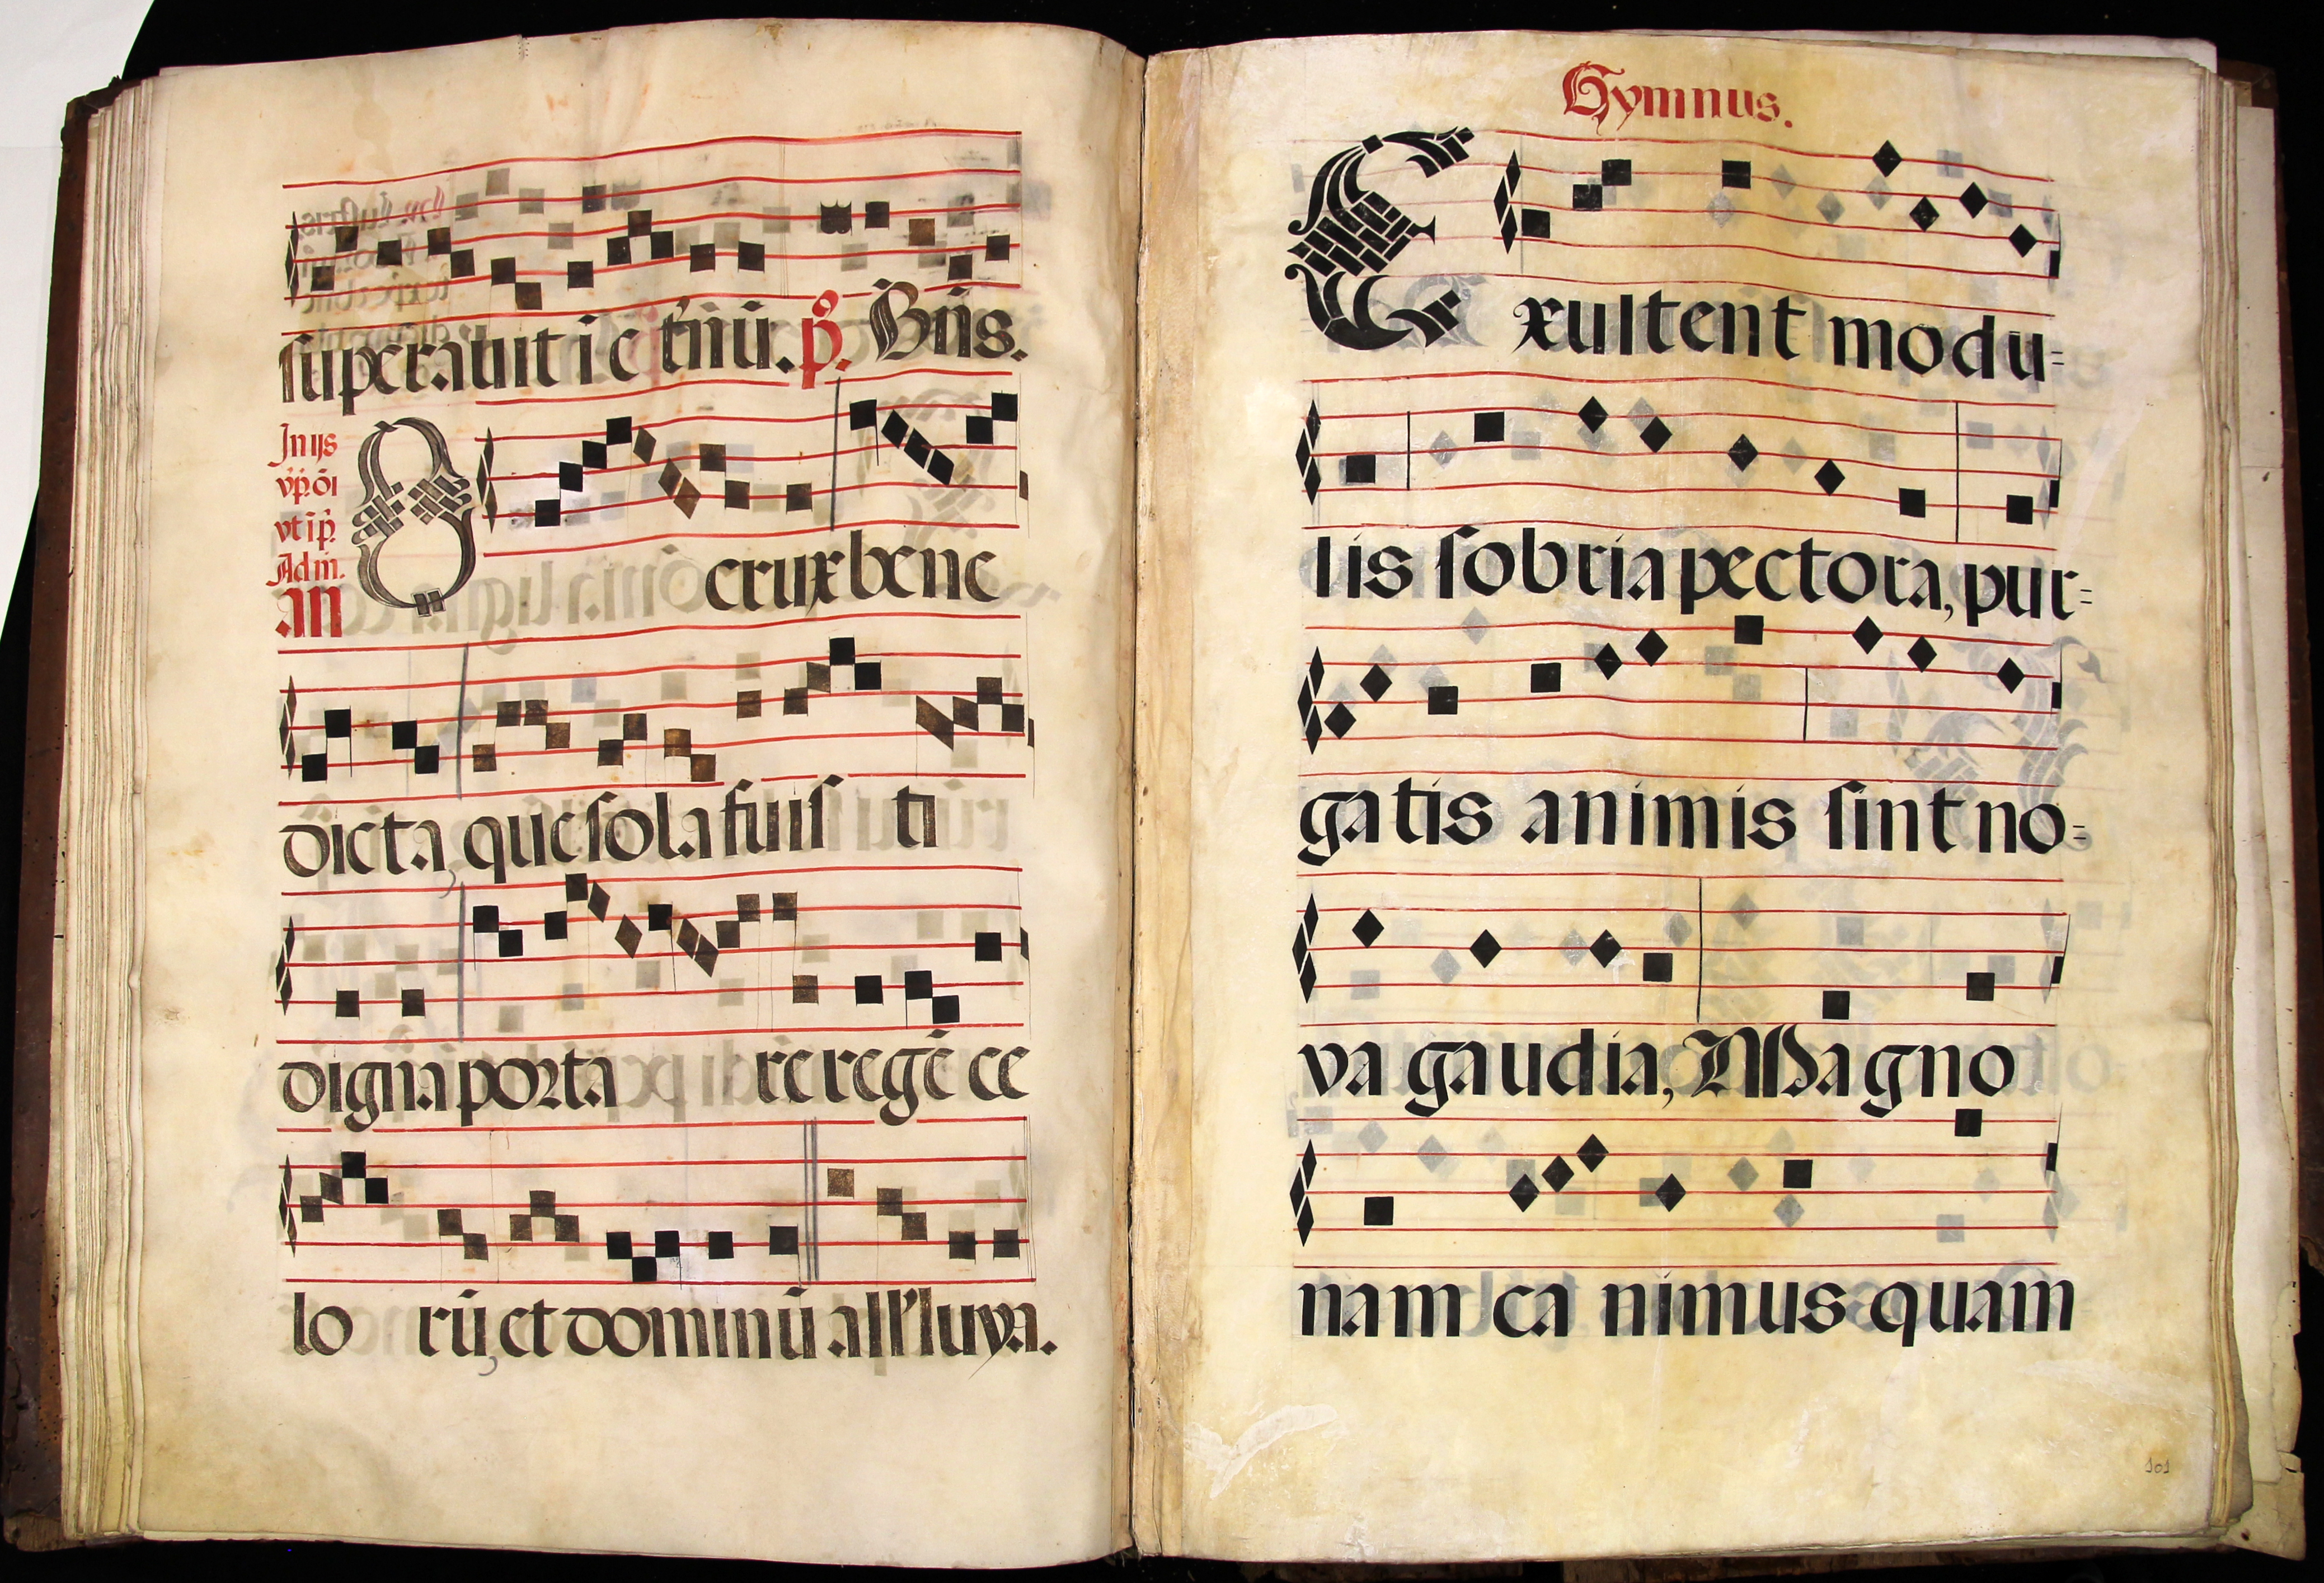 superauit i c t̄nū. p̄. Bn̄s.
In ijs
vp̄. oī
vt ī p̄.
Ad m̄.
an
O crux bene
dicta, que sola fuis ti
digna porta re regē ce
lo rū, et dominū all'luya.
Hymnus.
Exultent modu=
lis sobria pectora, pur=
gatis animis sint no=
va gaudia, Magno
nam ca nimus quam
101